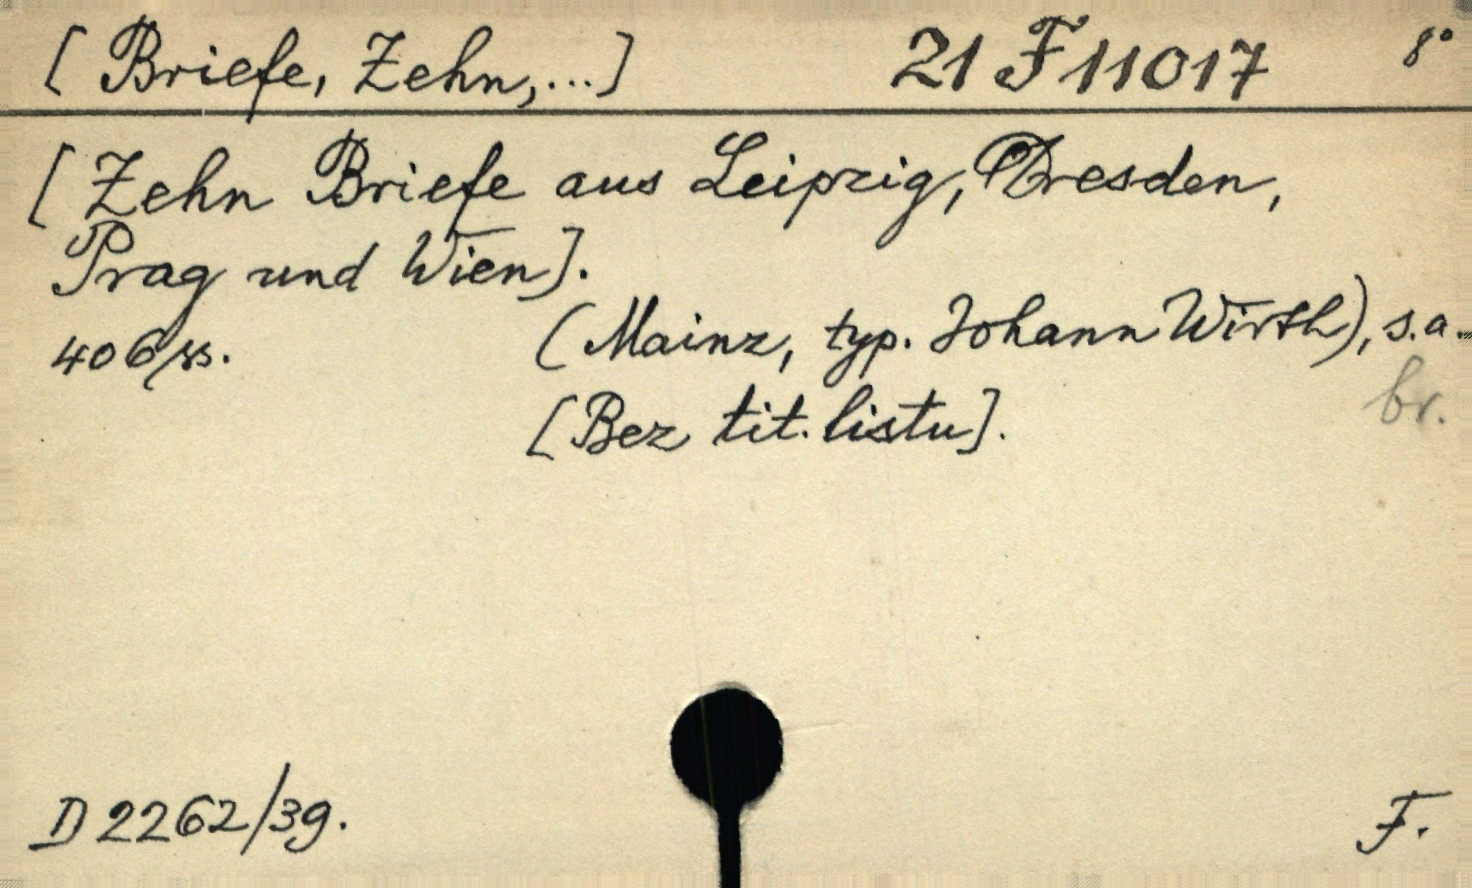 [Briefe, Zehn,...] 21 F 11017 8°
[Zehn Briefe aus Leipzig, Dresden,
Prag und Wien].
406 ss. (Mainz, typ. Johann Wirth), s.a.
br.
[Bez tit. listu].
D 2262/39. F.